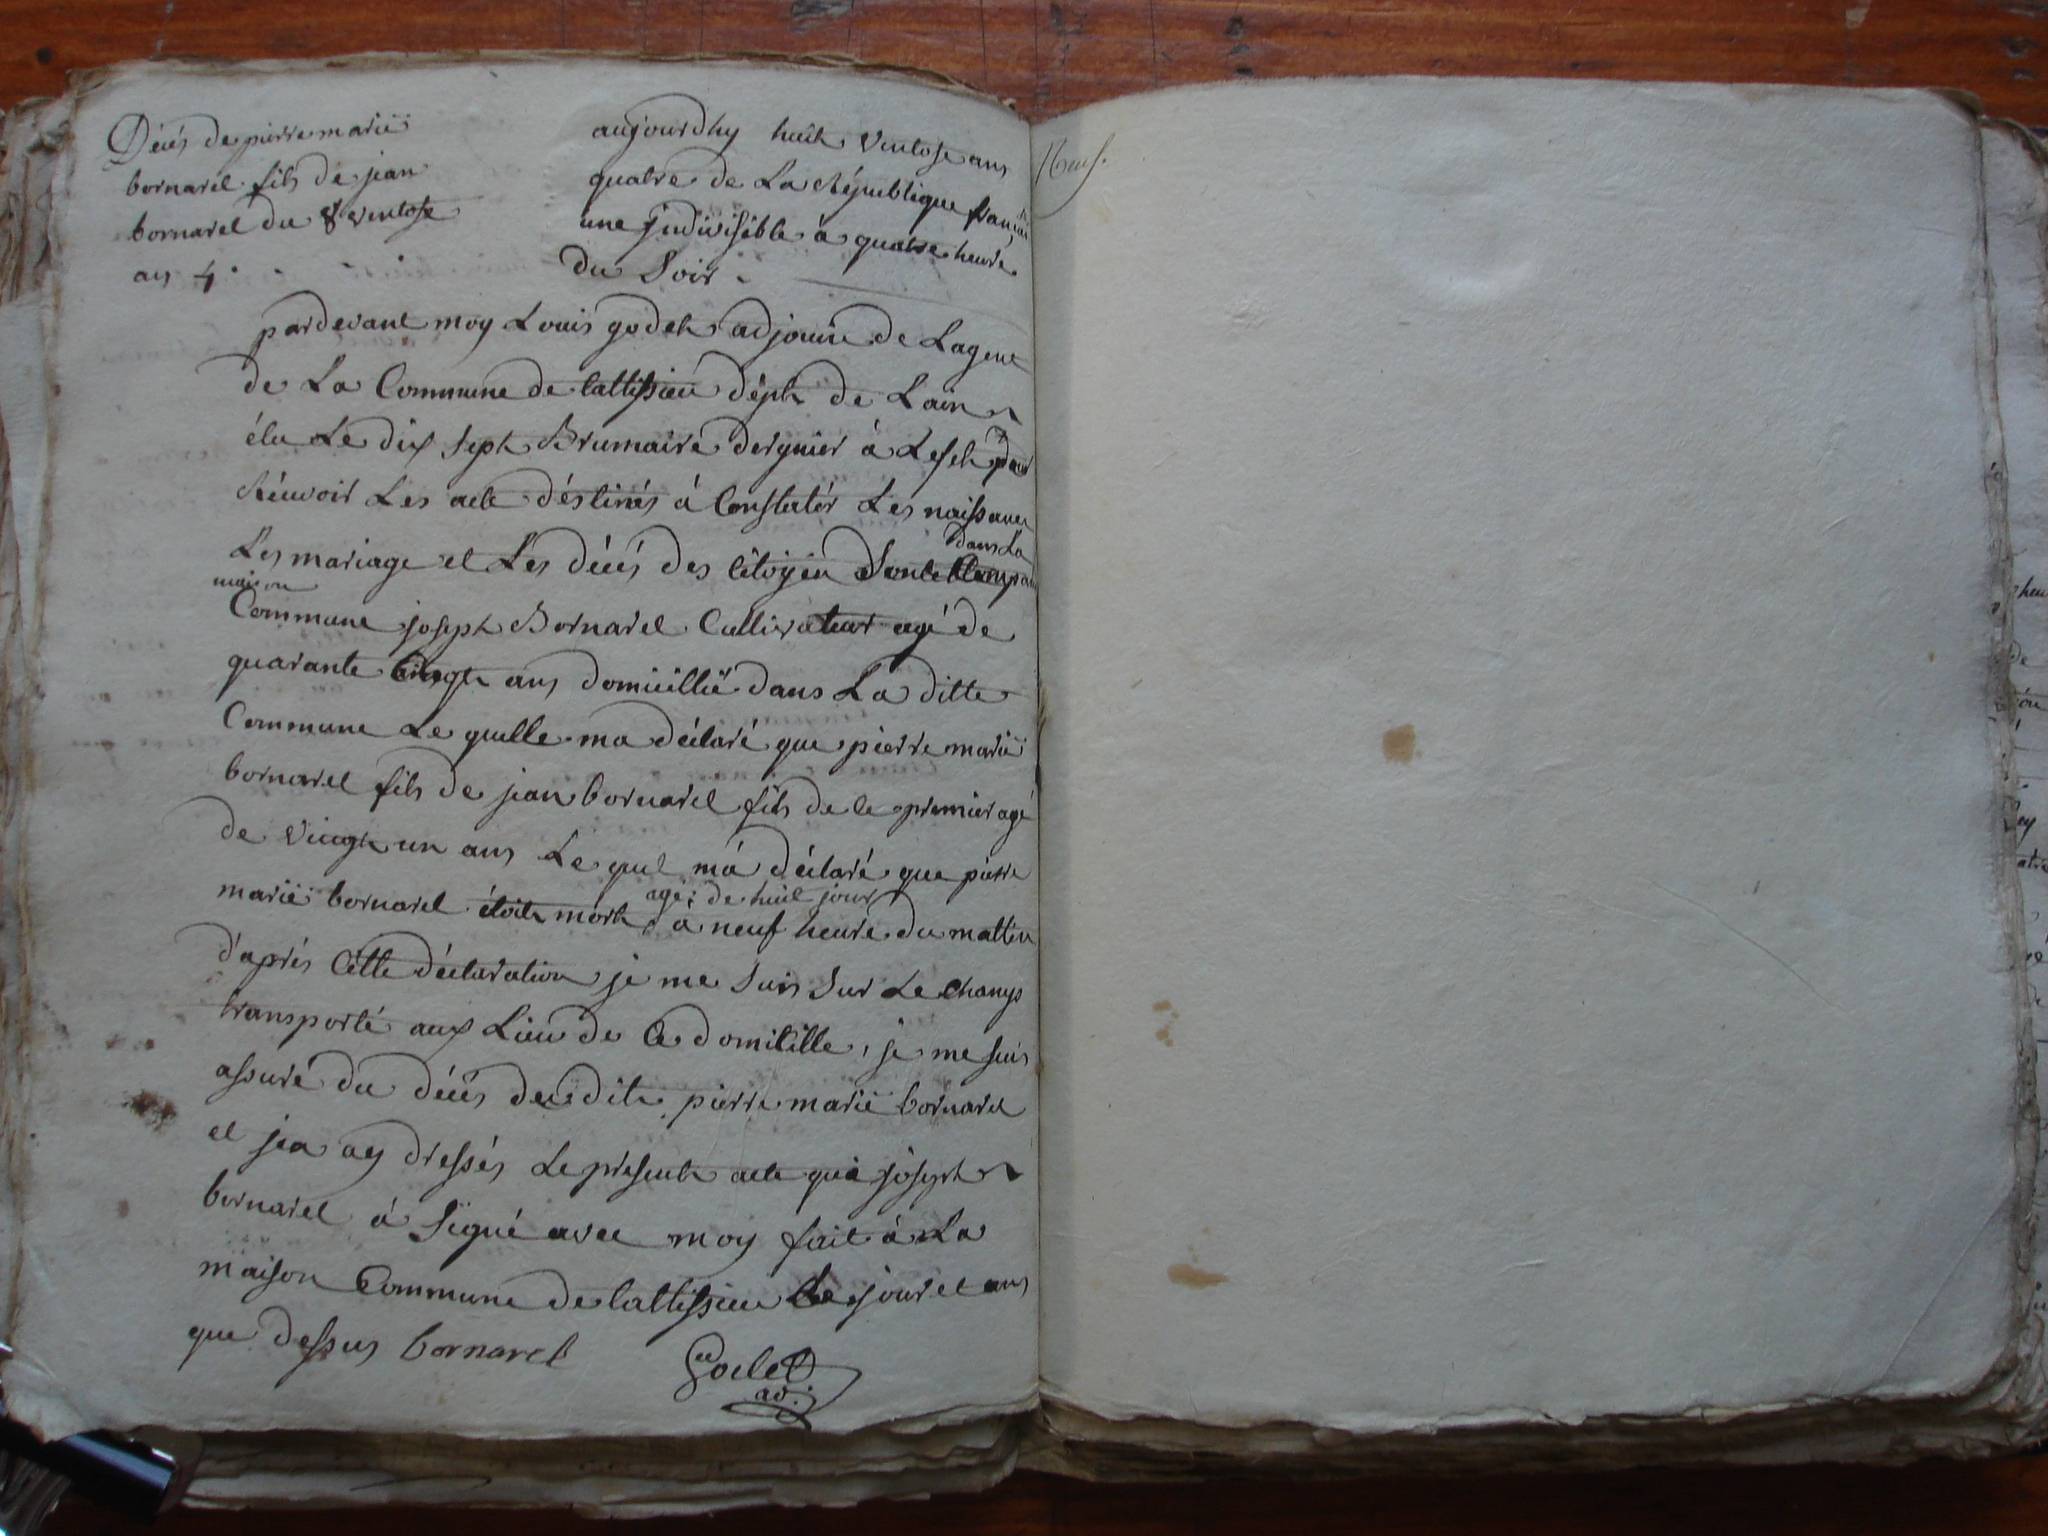 Décés de pierre marië
bornarel fils de jean
bornarel du 8 ventose
an 4
aujourdhy huit ventose ans
quatre de La République français
une jndivisible à quatre heure
du Soir
pardevant moy Louis godet adjoint de Lagent
de La Commune de Cattissieu dépt de Lain
élu Le dix sept Brumaire dergnier à Lefet pour
Récuvoir Les acte déstinés à Constatér Les naissance
Les mariage et Les décés des Citoyen Sont Comparu dans La
maison
Commune joseph Bornarel Cultivateur agé de
quarante Cinqt ans domicillié dans La ditte
Commune Le quelle ma déclaré que pierre marië
bornarel fils de jean bornarel fils de le premier agé
de vingt un ans Le quel má déclaré que pierre
marië bornarel étoit mort agé de huit jour à neuf heure du mattin
d'aprés Cette déclaration je me Suis Sur Le Champs
transporté aux Lieu de Ce domicille, je me suis
assuré du décés du dit pierre marië bornarel
et jen ay dressés Le present acte que joseph
bornarel á Signé avec moy fait à La
maison Commune de Cattissieu Le jour et ans
que dessus bornarel
Godet
ad.